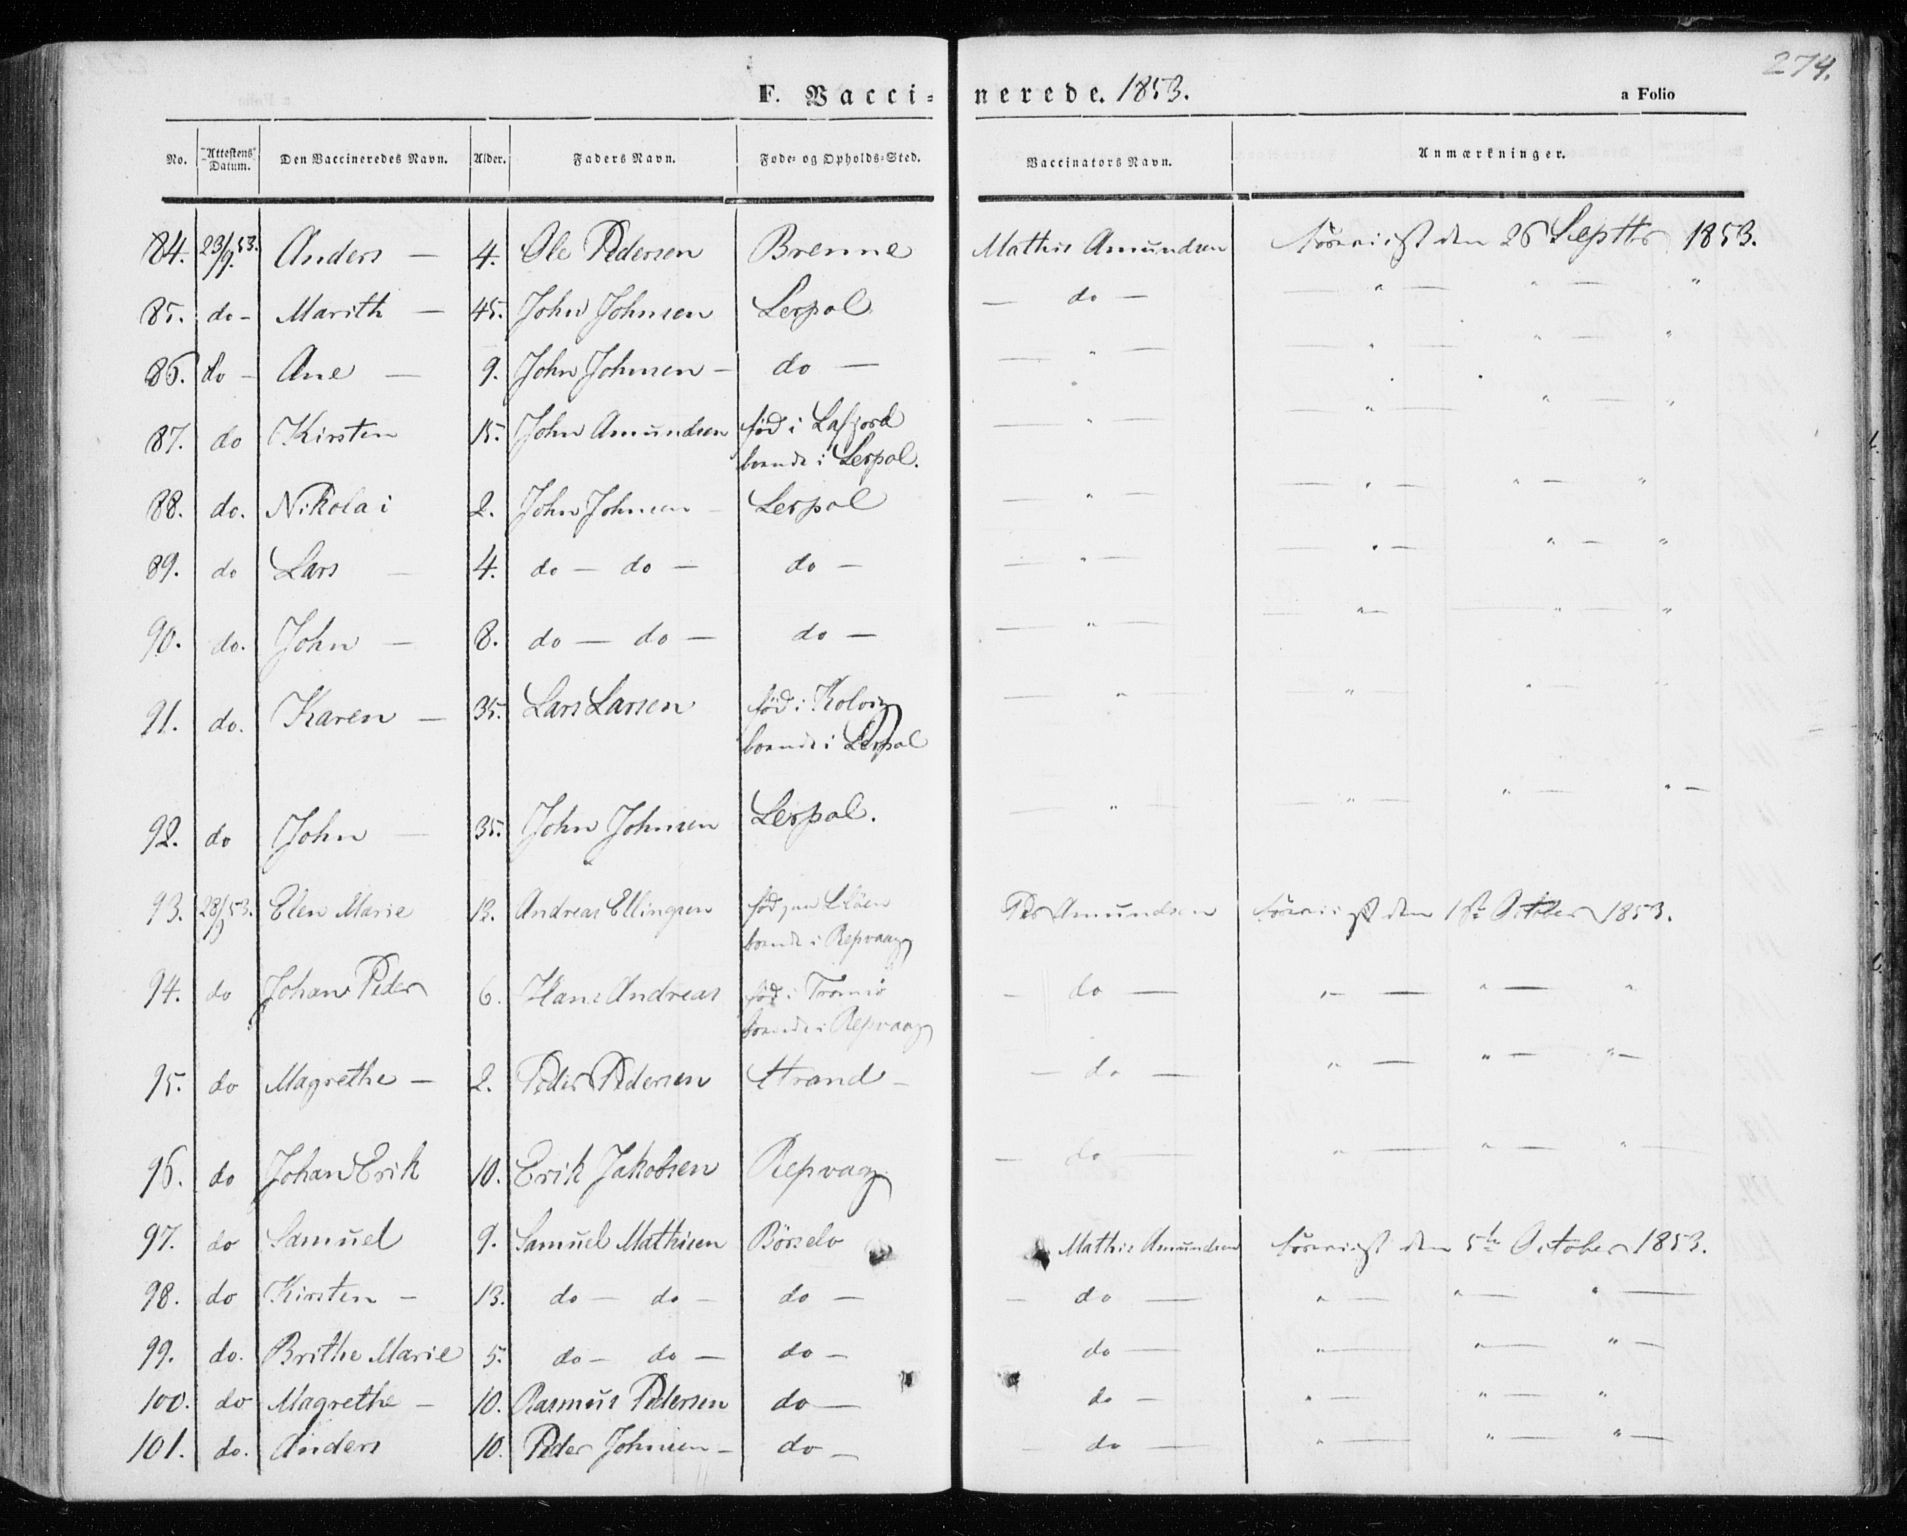 274.
F. Vaccinerede. 1853. a Folio
No. Attestens Datum. Den Vaccineredes Navn. Alder. Faders Navn. Føde- og Opholds-Sted. Vaccinators Navn. Anmærkninger.
84. 23/9 53. Anders — 4. Ole Pedersen Brenne Mathis Amundsen den 26 Septbr 1853.
85. do — Marith — 45. John Johnsen Lerpol — do — — " — " — "
86. do — Ane — 9. John Johnsen — do — — " — — " — " — "
87. do Kirsten 15. John Amundsen fød i Lafjord — " — — " — " — "
boende i Lerpol.
88. do. Nikolai 2. John Johnsen — Lerpol — " — — " — " — "
89. do Lars — 4. do — do — do — — " — — " — " — "
90. do. John — 8. do — do — do — — " — — " — " — "
91. do. Karen — 35. Lars Larsen fød i Kolvig — " — — " — " — "
boende i Lerpol
92. do John — 35. John Johnsen Lerpol. — " — — " — " — " —
93. 28/9 53. Elen Marie 13. Andreas Ellingsen Peder Amundsen den 1ste October 1853.
boende i Repvaag
94. do Johan Peder 6. Hans Andreas fød i Tromsø — do — " — " — "
boende i Repvaag
95. do Magrethe — 2. Peder Pedersen Strand — — do — " — " — " —
96. do Johan Erik 10. Erik Jakobsen Repvaag — do — " — " — " —
97. do Samuel 9. Samuel Mathisen Børselv Mathis Amundsen den 5te October 1853.
98. do Kirsten — 13. do — do — do — — do — " — " — " —
99. do. Brithe Marie 5. do — do — do — do — " — " — " —
100. do Magrethe — 10. Rasmus Pedersen do — do — " — " — "
101. do. Anders 10. Peder Johnsen — do — do — " — " — " —